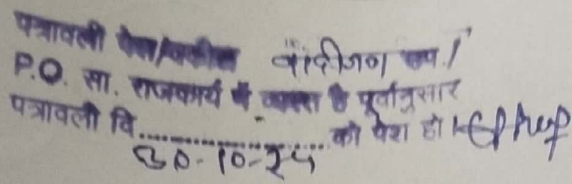 पत्रावली पेश/वकील वादीगण उप.।
P.O. सा. राजकार्य में व्यस्त है पूर्वानुसार
पत्रावली दि.................... को पेश हो।
30-10-24